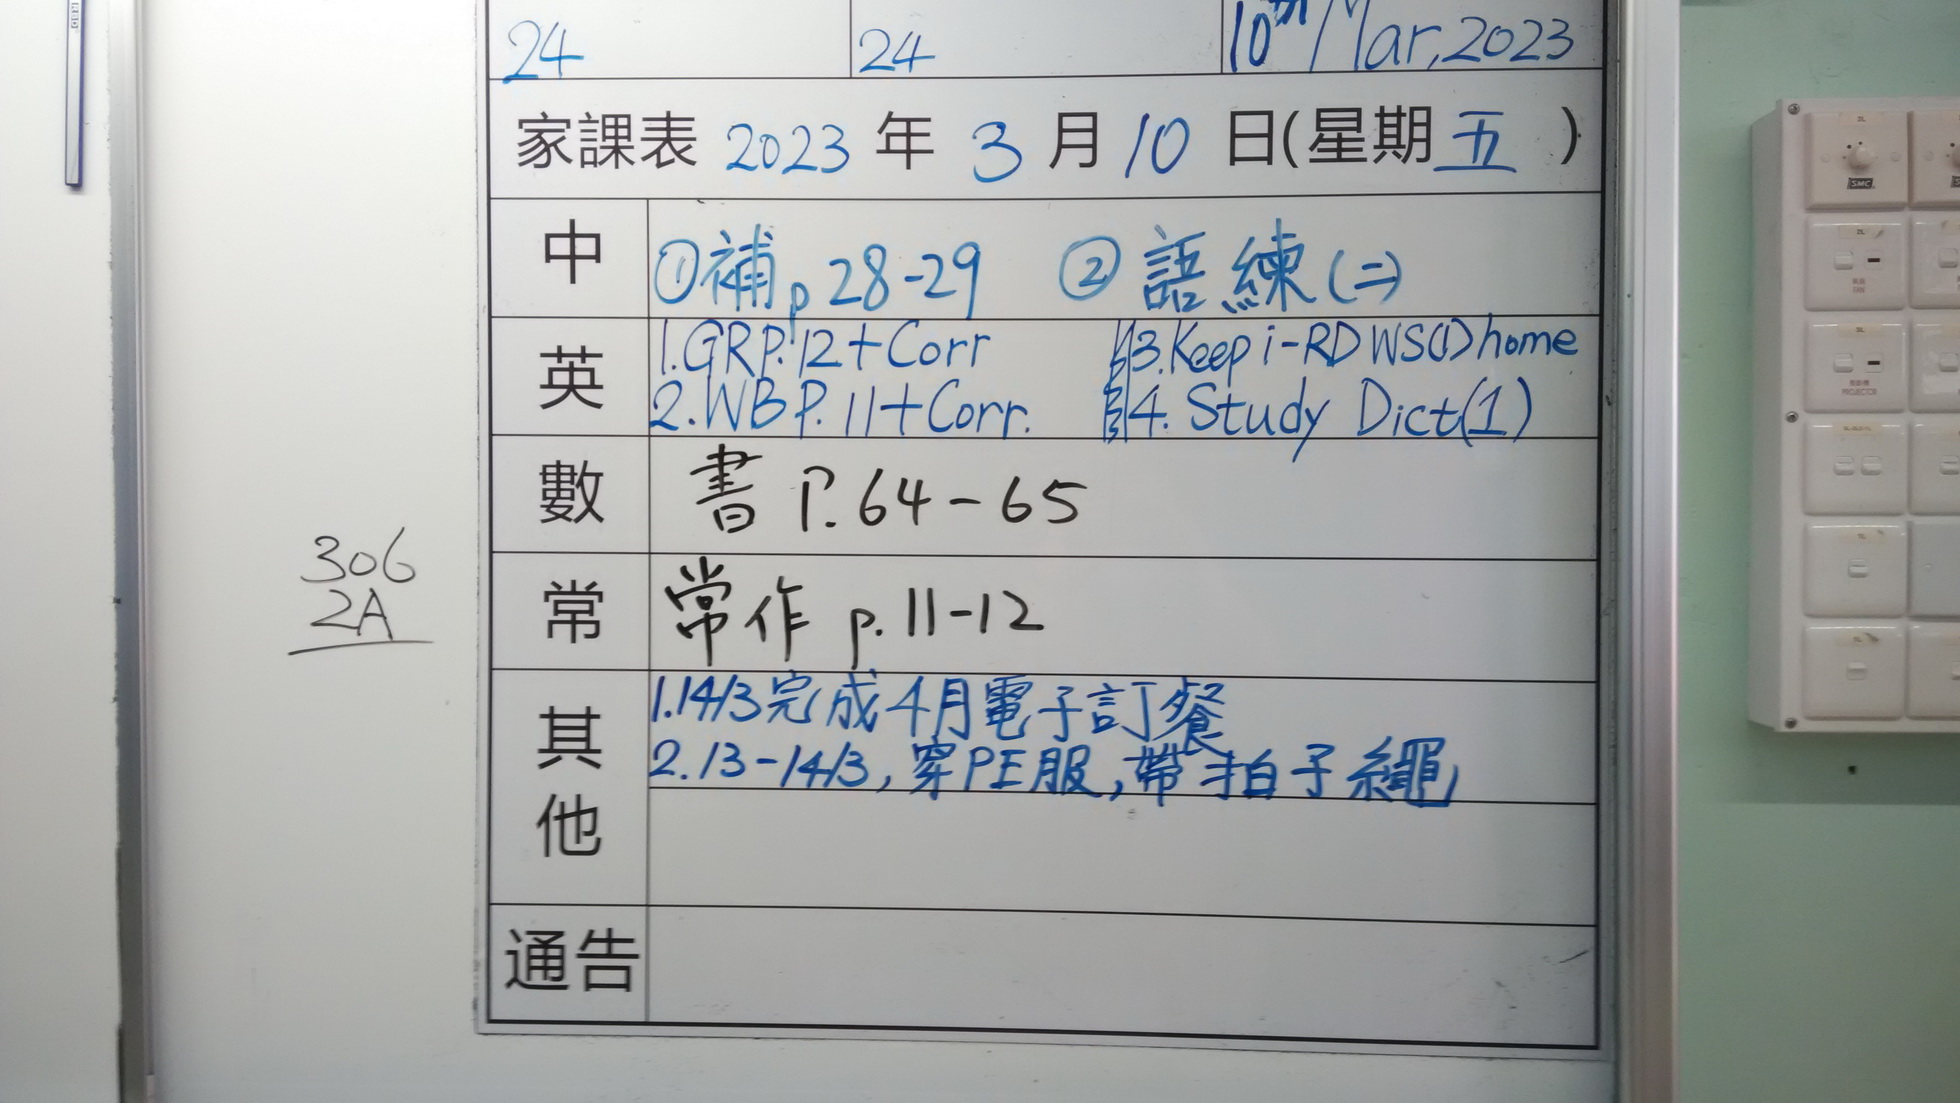 24 24 10th Mar, 2023
家課表 2023 年 3 月 10 日(星期五)
中 ①補p 28-29 ②語練(二)
英
1.GRP.12+Corr 3.Keep i-RD WS(1) home
2.WB P.11+Corr. 4. Study Dict(1)
數 書 P.64-65
306
2A
常 常作 p.11-12
其他
1.14/3完成4月電子訂餐
2.13-14/3,穿PE服,帶拍子繩
通告
SMC
FAN
PROJECTOR